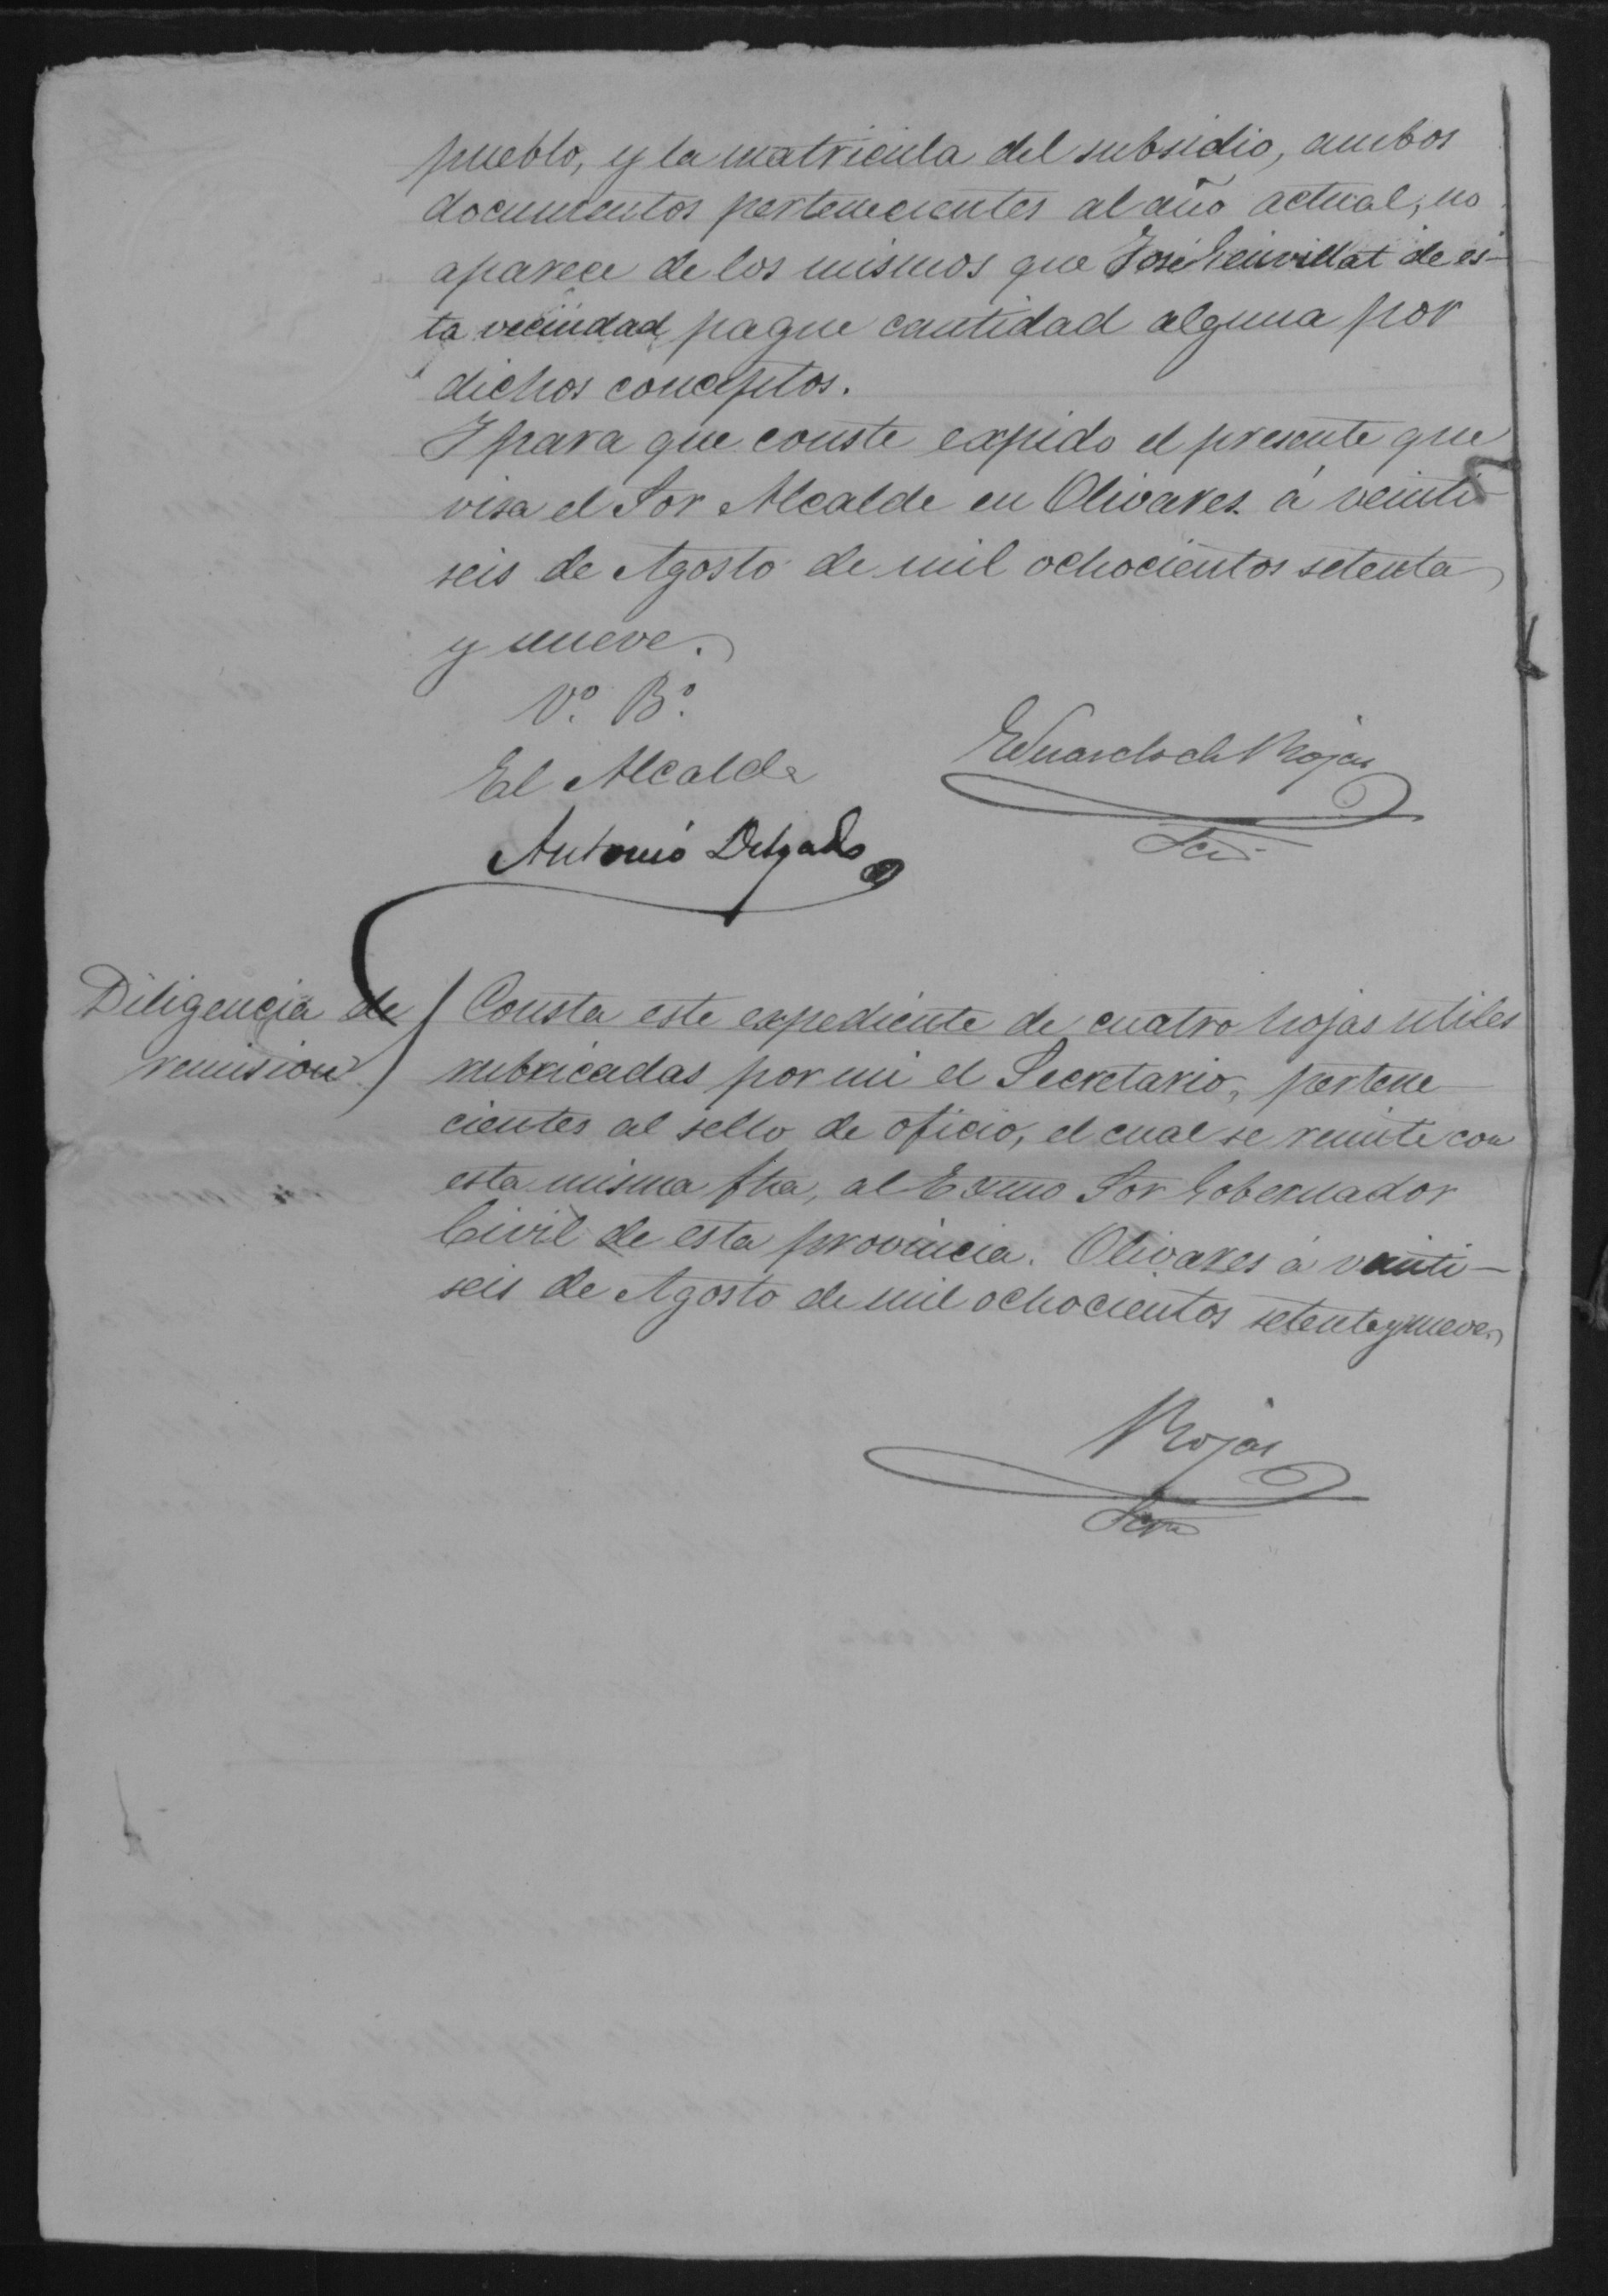 pueblo, y la matricula del subsidio, ambos
documentos pertenecientes al año actual, no
aparece de los mismos que José de es-
ta vecindad pague cantidad alguna por
dichos conceptos.
Y para que conste expido el presente que
visa el Sor Alcalde en Olivares á veinti
seis de Agosto de mil ochocientos setenta
y nueve.
Vº. Bº.
El Alcalde
Eduardo de Rojas
Antonio Delgado
Diligencia de
remision
Consta este expediente de cuatro hojas utiles
rubricadas por mi el Secretario, pertene
cientes al sello de oficio, el cual se remite con
esta misma fha, al Exmo Sor Gobernador
Civil de esta provincia. Olivares á veinti-
seis de Agosto de mil ochocientos setenta y nueve.
Rojas